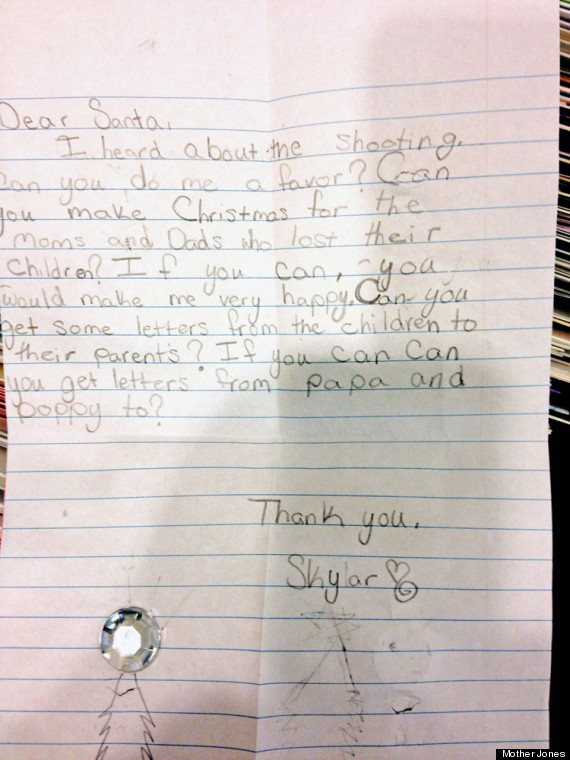 Dear Santa,
I heard about the shooting.
Can you do me a favor? Can
you make Christmas for the
Moms and Dads who lost their
Children? If you can, you
would make me very happy. Can you
get some letters from the children to
their parents? If you can Can
you get letters from papa and
poppy to?
Thank you,
Skylar
Mother Jones